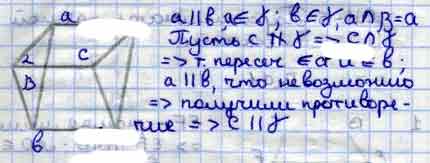 a
a∥b, a∈γ; b∈γ, a∩β=a
Пусть c ∦ γ => c∩γ
C
=> т. пересеч ∈ a и = b;
2
B
a∥b, что невозможно
=> получили противоре-
b
чие => c∥γ